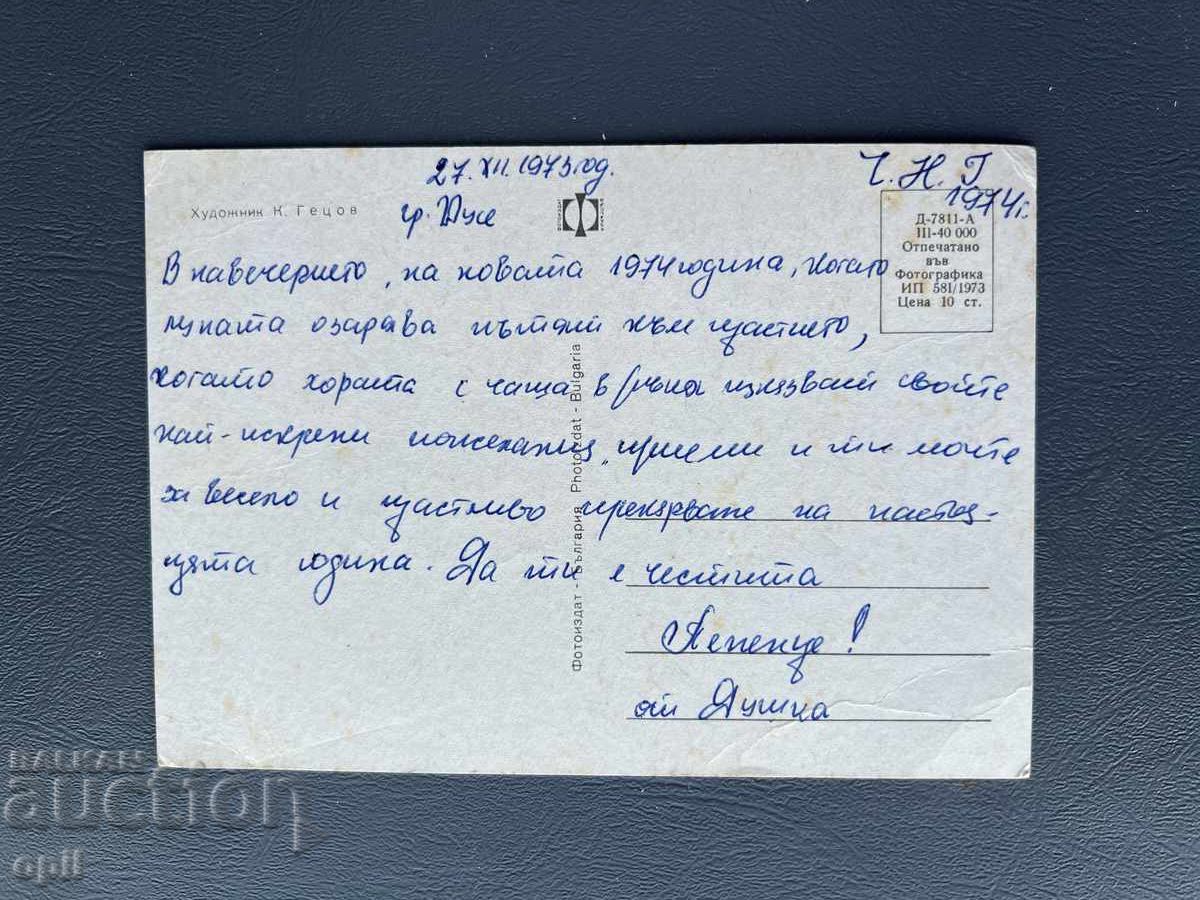 27.XII.1973 год.
Ч. Н. Г
1974г.
гр. Русе
Художник К. Гецов
Д-7811-А
III-40 000
Отпечатано
във
Фотографика
ИП 581/1973
Цена 10 ст.
В навечерието, на новата 1974 година, когато
луната озарява пътят към щастието,
когато хората с чаша в ръка изказват своите
най-искрени пожелания, приеми и ти моите
за весело и щастливо прекарване на настъп-
ващата година. Да ти е честита
Пепенце!
от Душка
Фотоиздат - България Photoizdat - Bulgaria
БАЛКАН
auction
opil